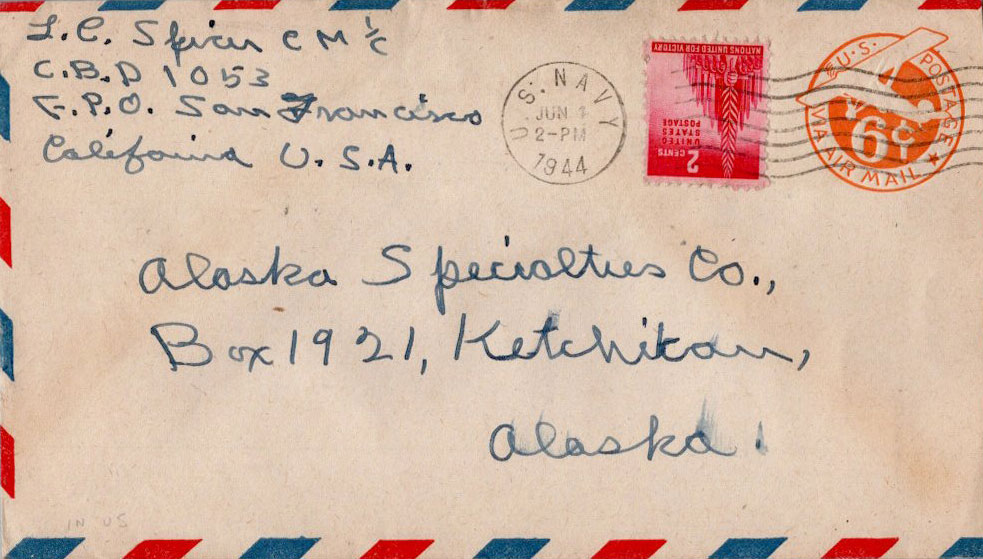 L.C. Spicer C M 1/c
C.B.D 1053
F.P.O. San Francisco
California U.S.A.
U.S. NAVY
JUN
2-PM
1944
NATIONS UNITED FOR VICTORY
UNITED
STATES
POSTAGE
2 CENTS
U.S. POSTAGE
6¢
VIA AIR MAIL
Alaska Specialties Co.,
Box 1921, Ketchikan,
Alaska.
IN US